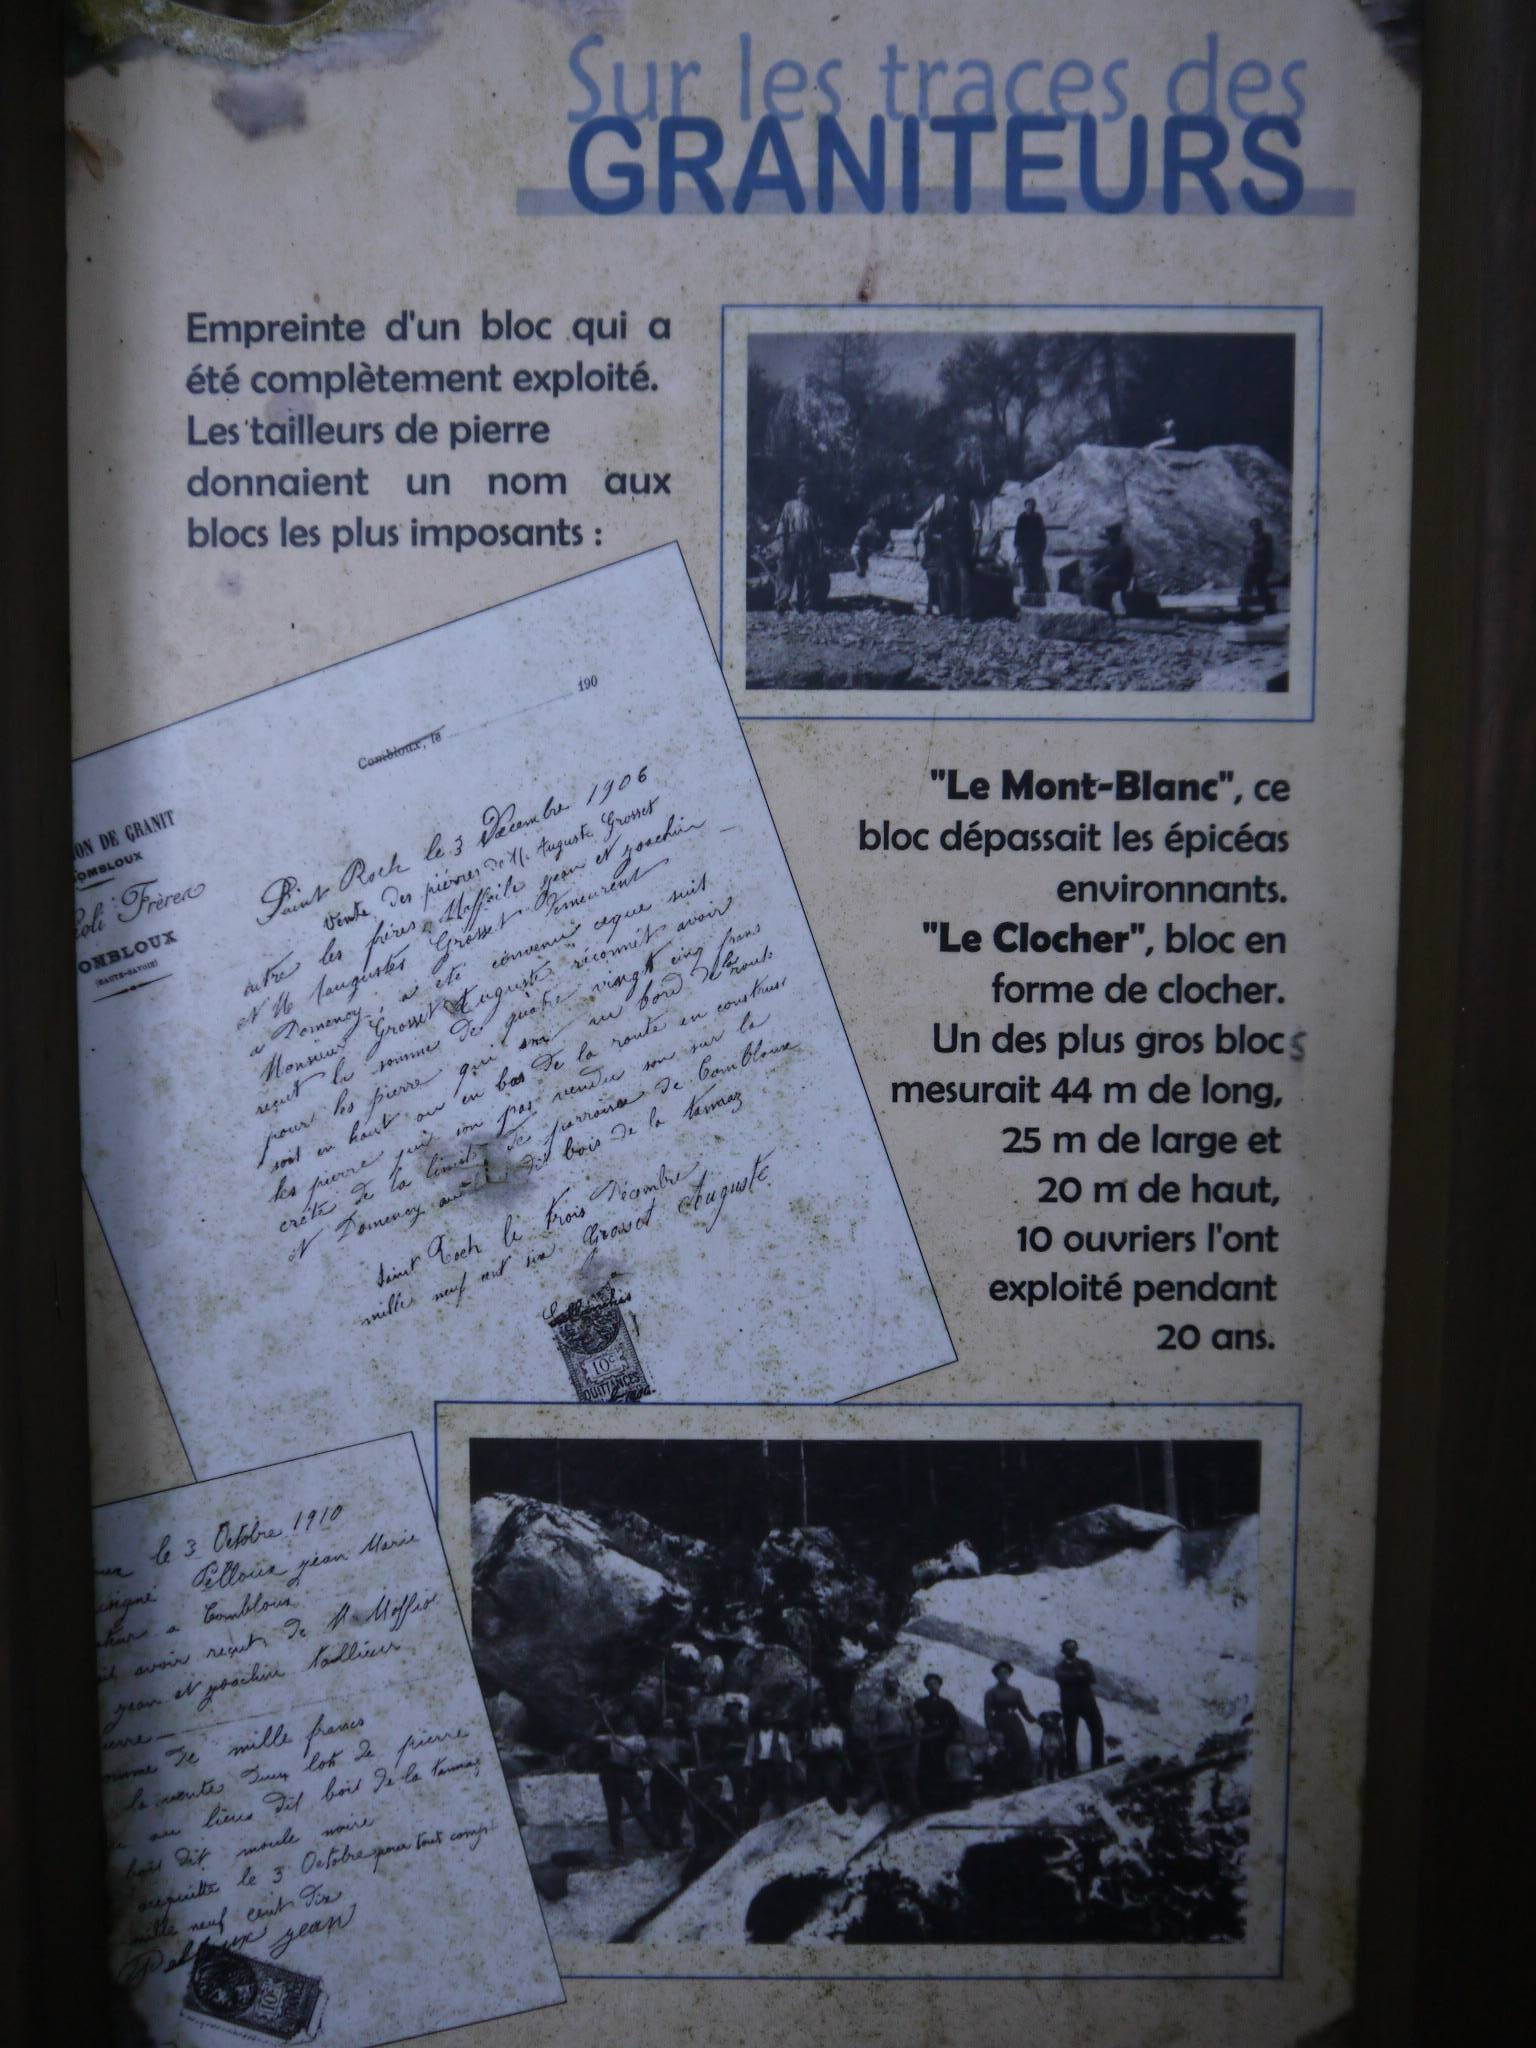 Sur les traces des
GRANITEURS
Empreinte d'un bloc qui a
été complètement exploité.
Les tailleurs de pierre
donnaient un nom aux
blocs les plus imposants :
"Le Mont-Blanc", ce
bloc dépassait les épicéas
environnants.
"Le Clocher", bloc en
forme de clocher.
Un des plus gros blocs
mesurait 44 m de long,
25 m de large et
20 m de haut,
10 ouvriers l'ont
exploité pendant
20 ans.
Combloux, le 190
ION DE GRANIT
OMBLOUX
oli Frères
OMBLOUX
(HAUTE-SAVOIE)
Saint Roch le 3 Décembre 1906
Vente des pierres de M. Auguste Grosset
entre les frères Maffioli jean et joachin
Grosset Demeurent
a Domency, a été convenu ceque suit
Monsieur Grosset Auguste reconnêt avoir
reçut la somme de quatre vingt cinq frans
pour les pierre qui son au bord de la route
soit en haut ou en bas de la route en construs
les pierre qui son pas vendu son sur la
crête de la limite de parroisse de Combloux
N Domency au dit bois de la tannaz
Saint Roch le trois Décembre
mille neuf cent six Grosset Auguste
10c
QUITTANCES
le 3 Octobre 1910
signé Pelloux jean Marie
a Combloux
avoir reçut de M Moffiol
jean et joachin taillieur
ierre
omme de mille francs
la vente Duns lots de pierre
au lieus dit bois de la tannaz
bois dit moule noire
acquitte le 3 Octobre pour tout compt
mille neuf cent Dix
Pelloux jean
10c